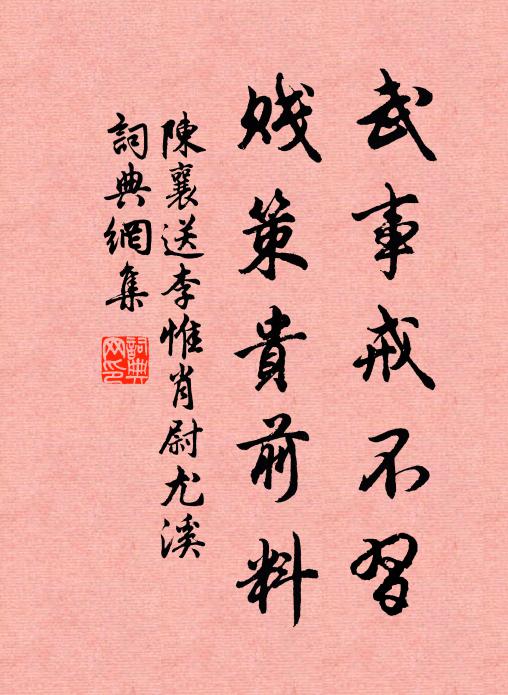 武事戒不習
賤策貴前料
陳襄送李惟肖尉尤溪
詞典網集
詞典
网印